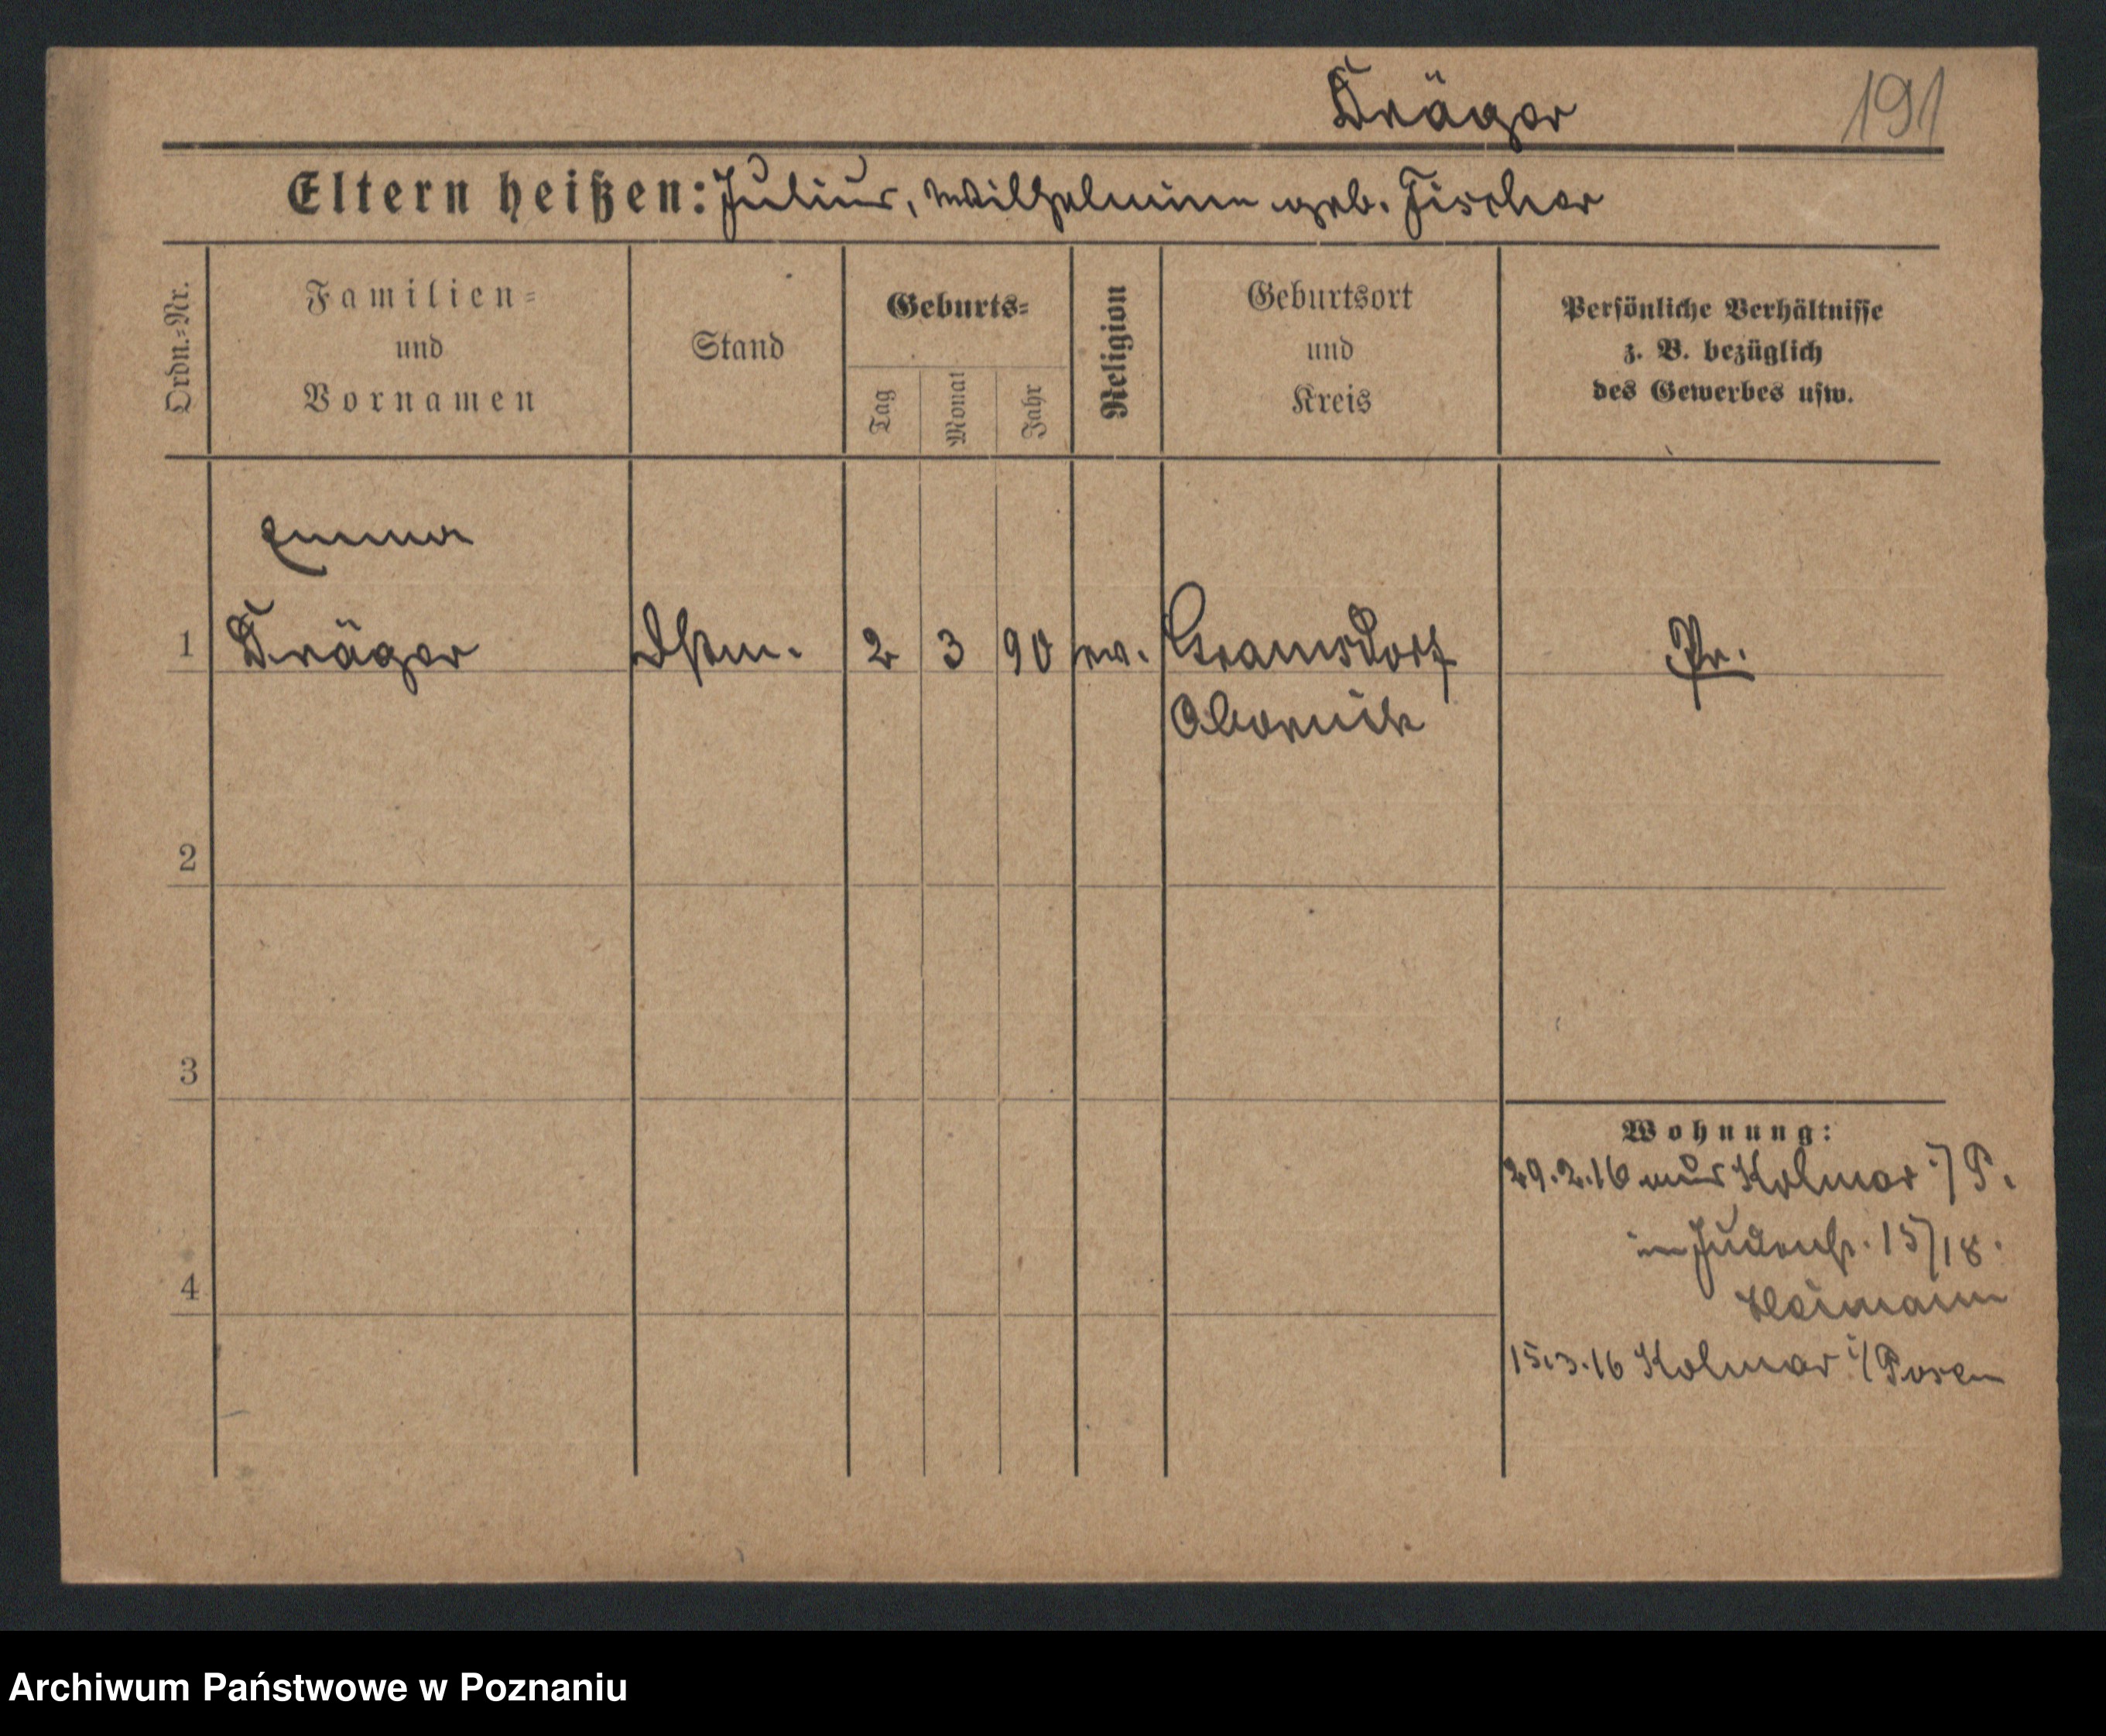 Kräger 191
Eltern heißen: Julius, Wilhelmine geb. Fischer
Ordn.-Nr.
Familien-
und
Vornamen
Stand
Geburts-
Tag
Monat
Jahr
Religion
Geburtsort
und
Kreis
Persönliche Verhältnisse
z. B. bezüglich
des Gewerbes usw.
Emma
1 Kräger Dstm. 2 3 90 ev. Gramsdorf Pr.
Obornik
2
3
Wohnung:
29.2.16 aus Kolmar i/P.
Judenstr. 15/18.
4
Heimann
15.3.16 Kolmar i/Posen
Archiwum Państwowe w Poznaniu